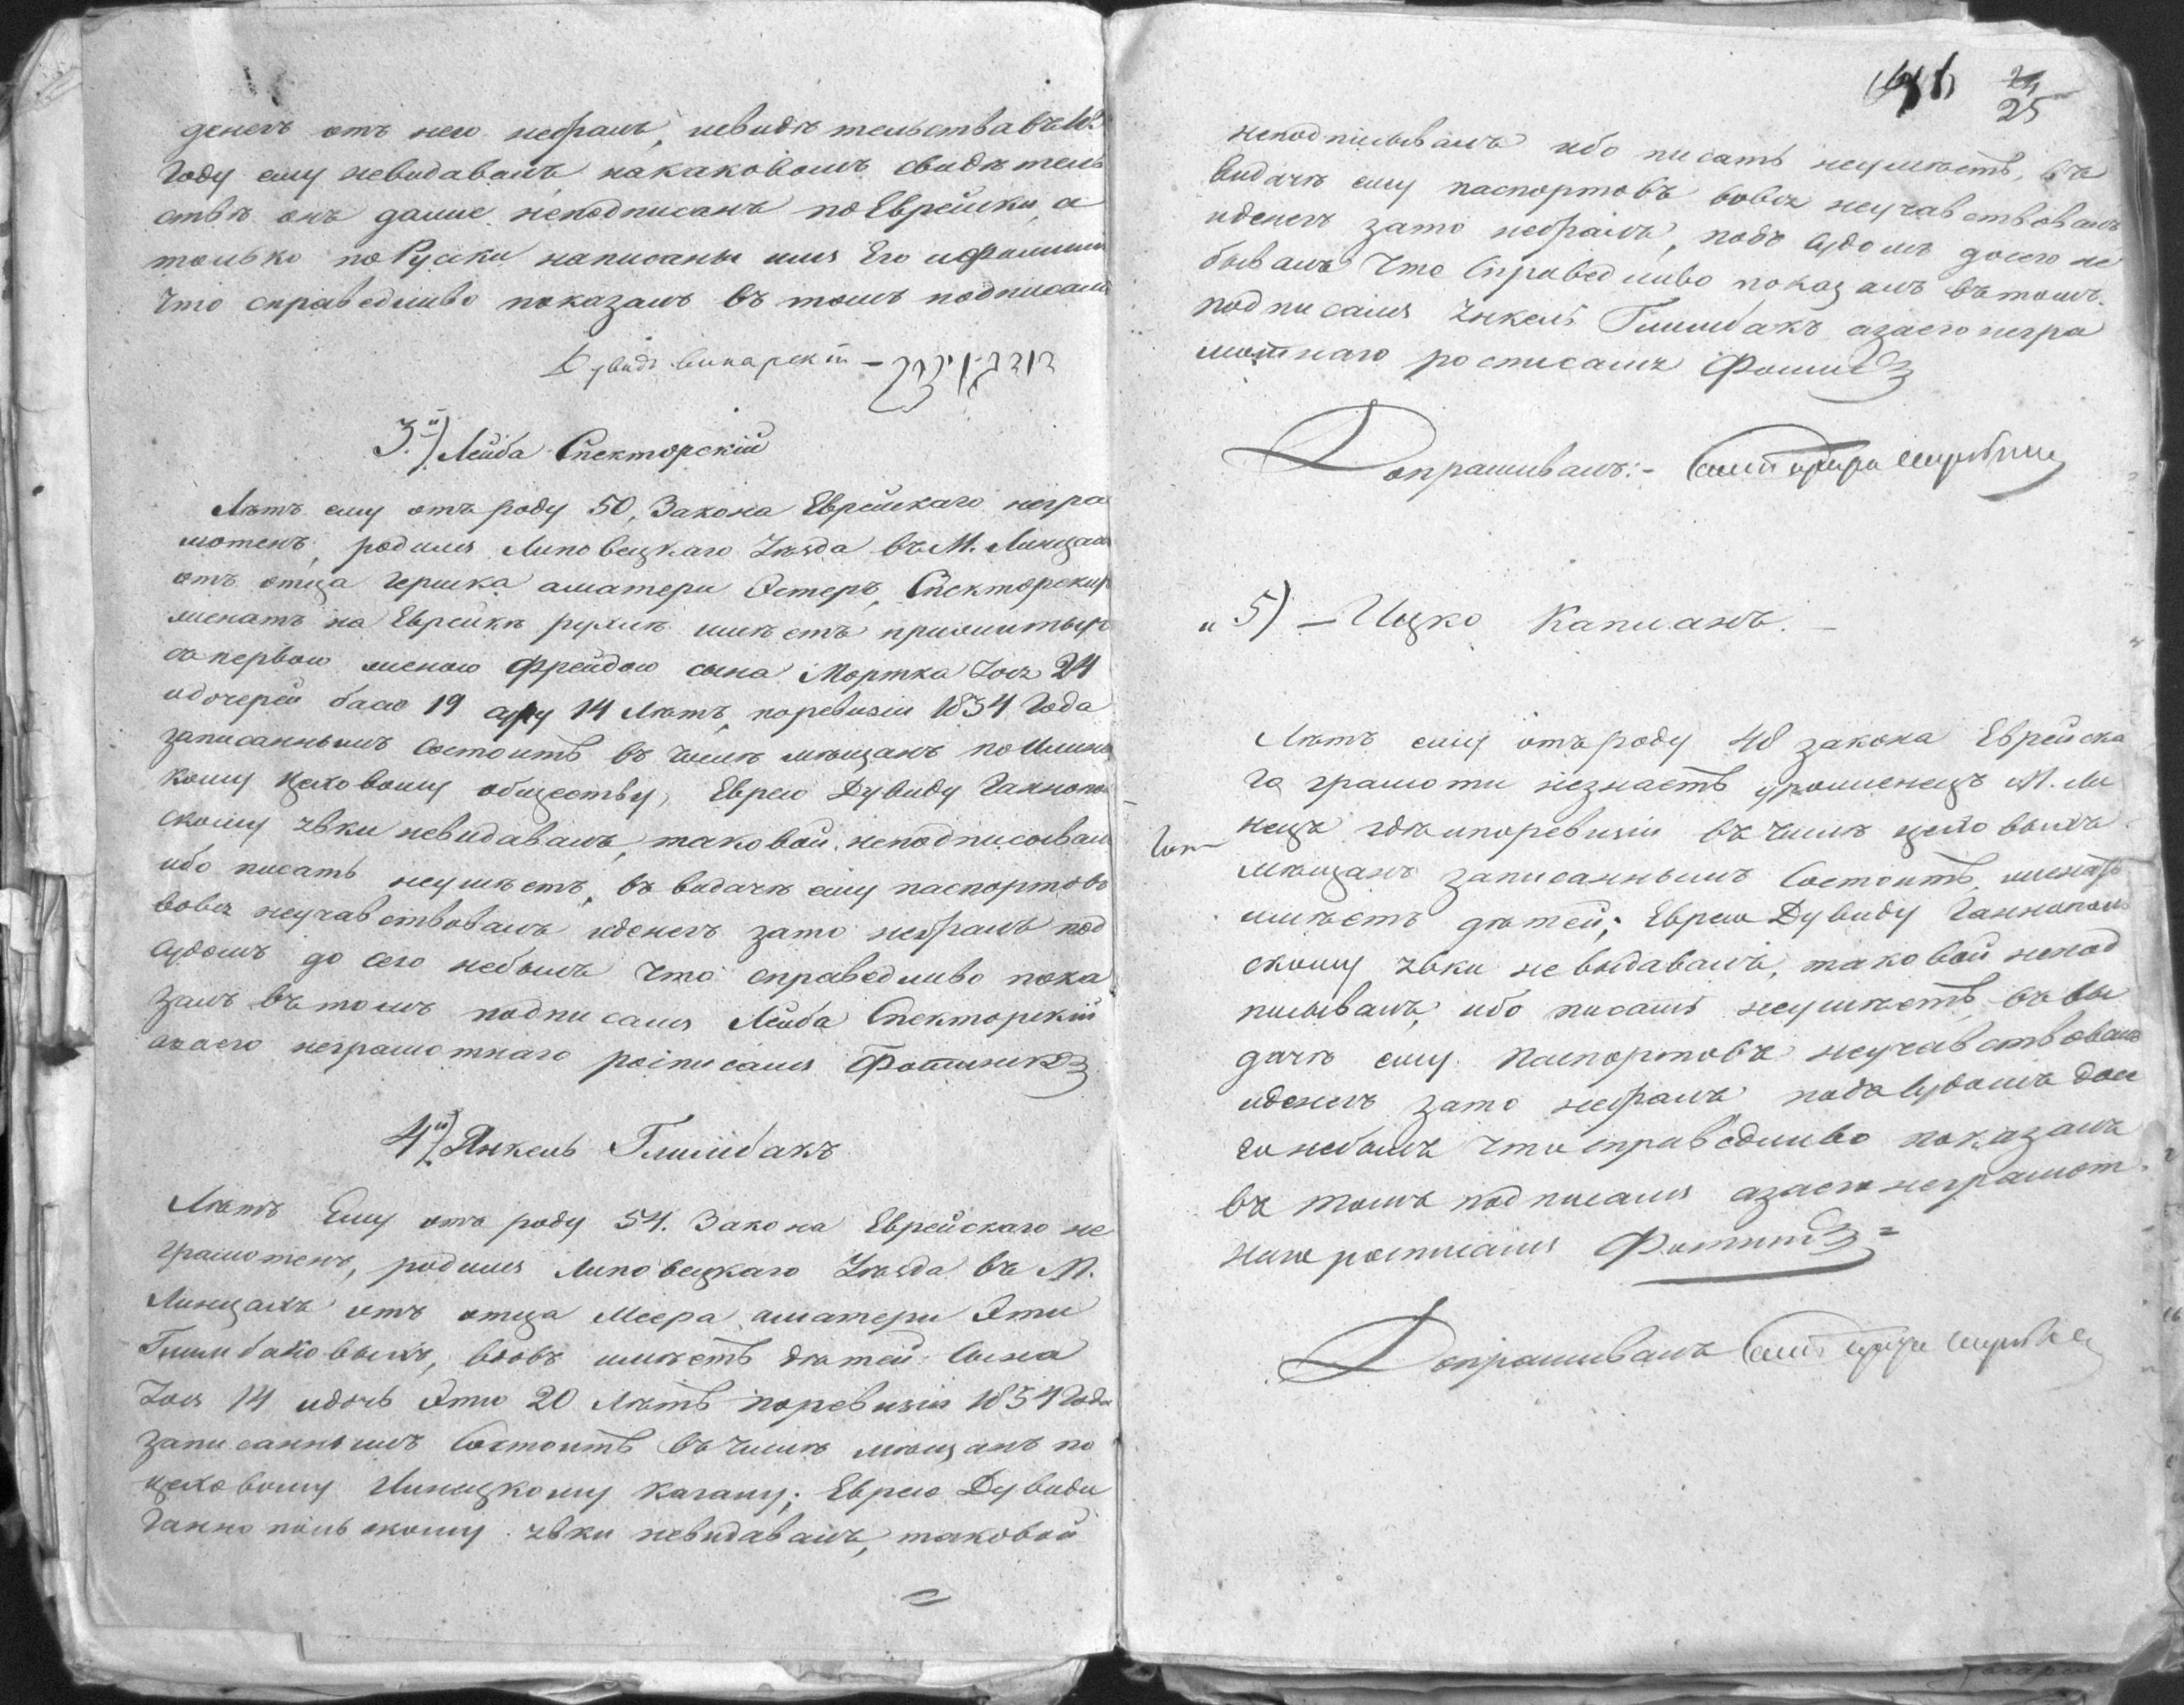 денегъ отъ него небралъ, свидѣтельства въ
году ему невидавалъ накаковомъ свидѣтель
ствѣ онъ далие неподписанъ по Еврейски, а
только по Руски написаны имя Его ифамилия
Что справедливо показалъ въ томъ подписался
Дувидъ Винарскій
3.й) Лейба Спекторскій
Лѣтъ ему отъ роду 50, Закона Еврейскаго негра
мотенъ, родился Липовецкаго Уѣзда въ М. Линцахъ
отъ отца Гершка аматери Эстеръ, Спекторских
женатъ на Еврейкѣ рухлѣ имѣетъ прижитых
съ первою женою Фрейдою сына Мортка Іося 24
идочерей басю 19 суру 14 Лѣтъ, поревизіи 1834 Года
записаннымъ Состоитъ въ числѣ мѣщанъ по Илинец
кому цеховому обществу, Еврею Дувиду Ганнополь
скому звки невидавалъ, таковой неподписовалъ
ибо писать неумѣетъ, въ видачѣ ему паспортовъ
вовся неучавствовалъ иденегъ зато небралъ под
Судомъ до сего небылъ Что справедливо пока
залъ въ томъ подписался Лейба Спекторскій
азаего неграмотнаго росписался
4й) Янкель Глимбакъ
Лѣтъ Ему отъ роду 54. Закона Еврейскаго не
грамотенъ, родился Липовецкаго Уѣзда въ М.
Линцахъ отъ отца Меера аматери Эти
Глимбаковыхъ, вдовъ имѣетъ дѣтей Сына
Іося 14 идочь Этю 20 Лѣтъ поревизіи 1854 Года
записаннымъ Состоитъ въ числѣ мѣщанъ по
цеховому Илинецкому кагалу; Еврею Дувиду
Ганнопольскому звки невидавалъ, таковой
24
25
неподписывалъ ибо писать неумѣетъ, въ
видачѣ ему паспортовъ вовся неучавствовалъ
иденегъ зато небралъ, подъ Судомъ досего не
бывалъ Что Справедливо показалъ вътомъ.
подписался Янкель Глимбакъ азаего негра
мотнаго росписался
Допрашивалъ:-
„ 5) – Ицко Капланъ. –
Лѣтъ ему отъ роду 48 закона Еврейска
го грамоти незнаетъ уроженецъ М. Ли
нецъ гдѣ ипоревизіи въ числѣ цеховыхъ
мѣщанъ записаннымъ Состоитъ, женатъ
имѣетъ дѣтей; Еврею Дувиду Ганнополь
скому звки невыдавалъ, таковой непод
писывалъ, ибо писать неумѣетъ, въ вы
дачѣ ему паспортовъ неучавствовалъ
иденегъ зато небралъ подъ Судомъ досе
го небылъ что справедливо показалъ
въ томъ подписался азаего неграмот
наго росписался
Допрашивалъ